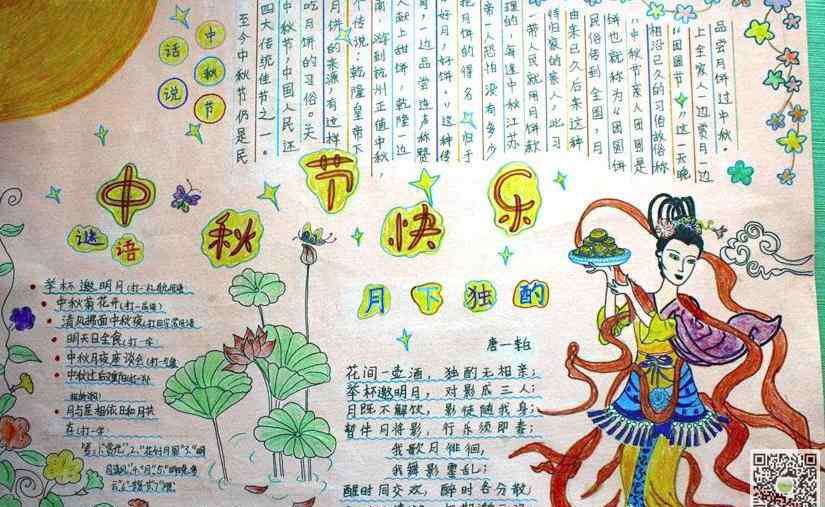 中秋节
话说
品尝月饼过中秋。
上全家人一边赏月一边
“团圆节”，这一天晚
相沿已久的习俗故俗称
“中秋节亲人团圆是
饼也就称为“团圆饼
民俗传到全国，月
由来已久后来这种
待归家的亲人，此习
一带人民就用月饼款
理的，每逢中秋江苏
帝一人恐怕没有多少
把月饼的得名归于
“好月，好饼。”这种传
，一边品尝连声称赞
人献上甜饼，乾隆一边
南，游到杭州正值中秋，
个传说：乾隆皇帝下
月饼的来源，有这样
吃月饼的习俗。关
中秋节，中国人民还
四大传统佳节之一。
至今中秋节仍是民
中秋节快乐
谜语
举杯邀明月
中秋菊花开(打一成语)
清风拂面中秋夜
明天日全食(打一字
中秋月夜座谈会(打一
中秋过后
月与星相依日和月共
在(打一字)
月下独酌
唐—李白
花间一壶酒，独酌无相亲；
举杯邀明月，对影成三人；
月既不解饮，影徒随我身；
暂伴月将影，行乐须即春；
我歌月徘徊，
我舞影零乱；
醒时同交欢，醉时各分散，